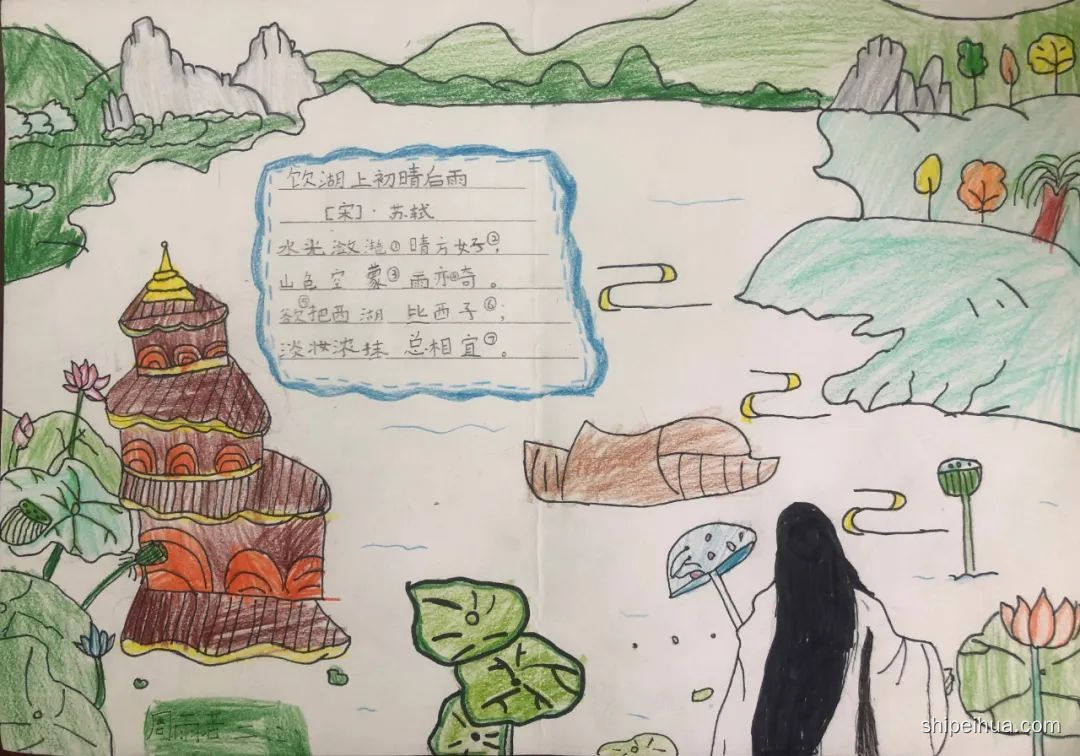 饮湖上初晴后雨
[宋]·苏轼
水光潋滟①晴方好②,
山色空蒙③雨亦④奇。
⑤欲把西湖 比西子⑥;
淡妆浓抹 总相宜⑦。
周
shipeihua.com